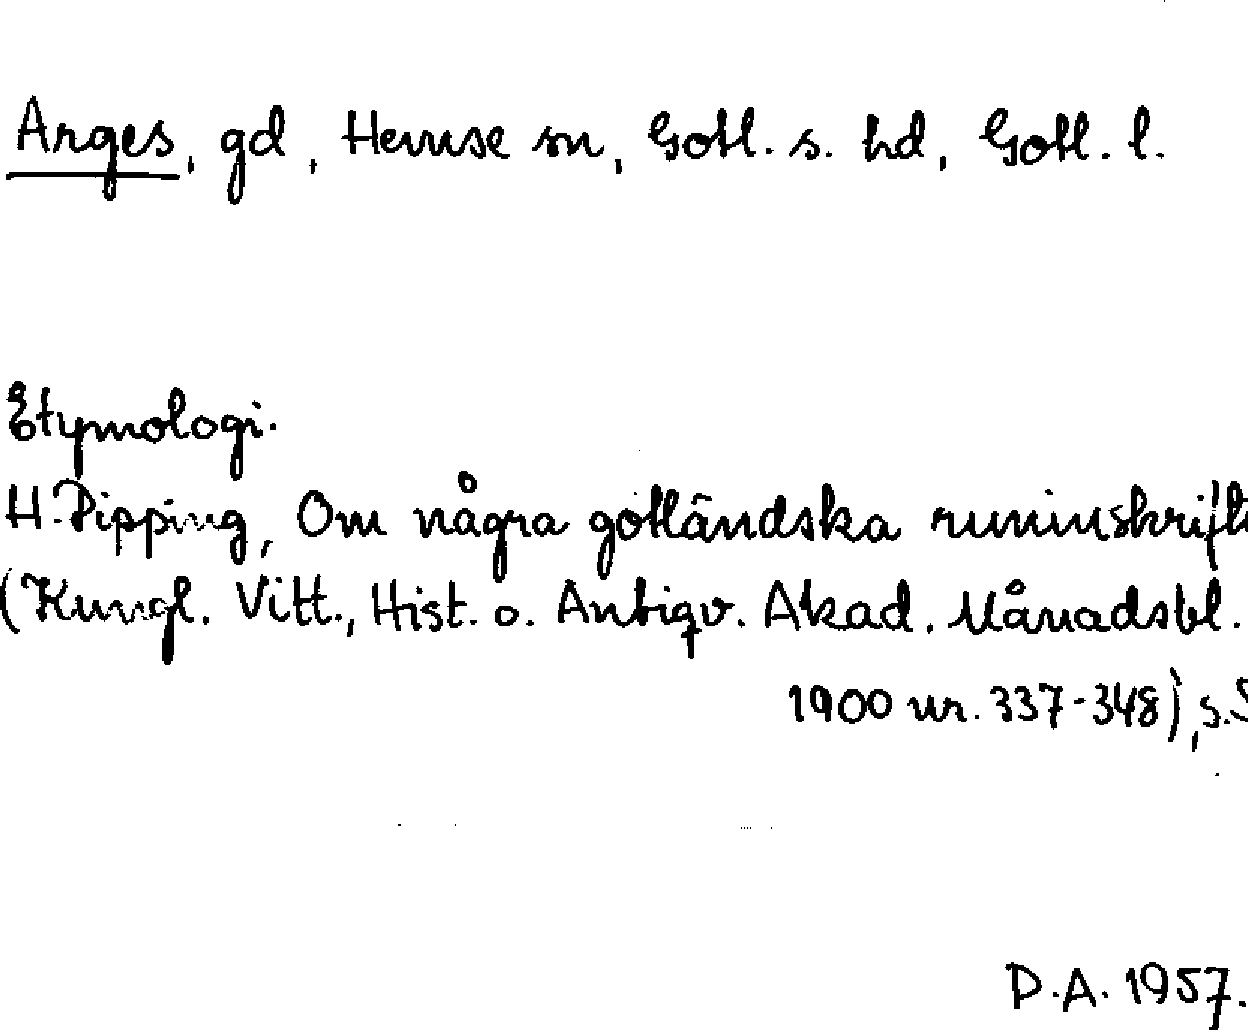 Arges, gd, Hemse sn, Gotl. s. hd, Gotl. l.
Etymologi.
H. Pipping, Om några gotländska runinskrift
(Kungl. Vitt., Hist. o. Antiqv. Akad. Månadsbl.
1900 nr. 337-348), s.
D.A. 1957.